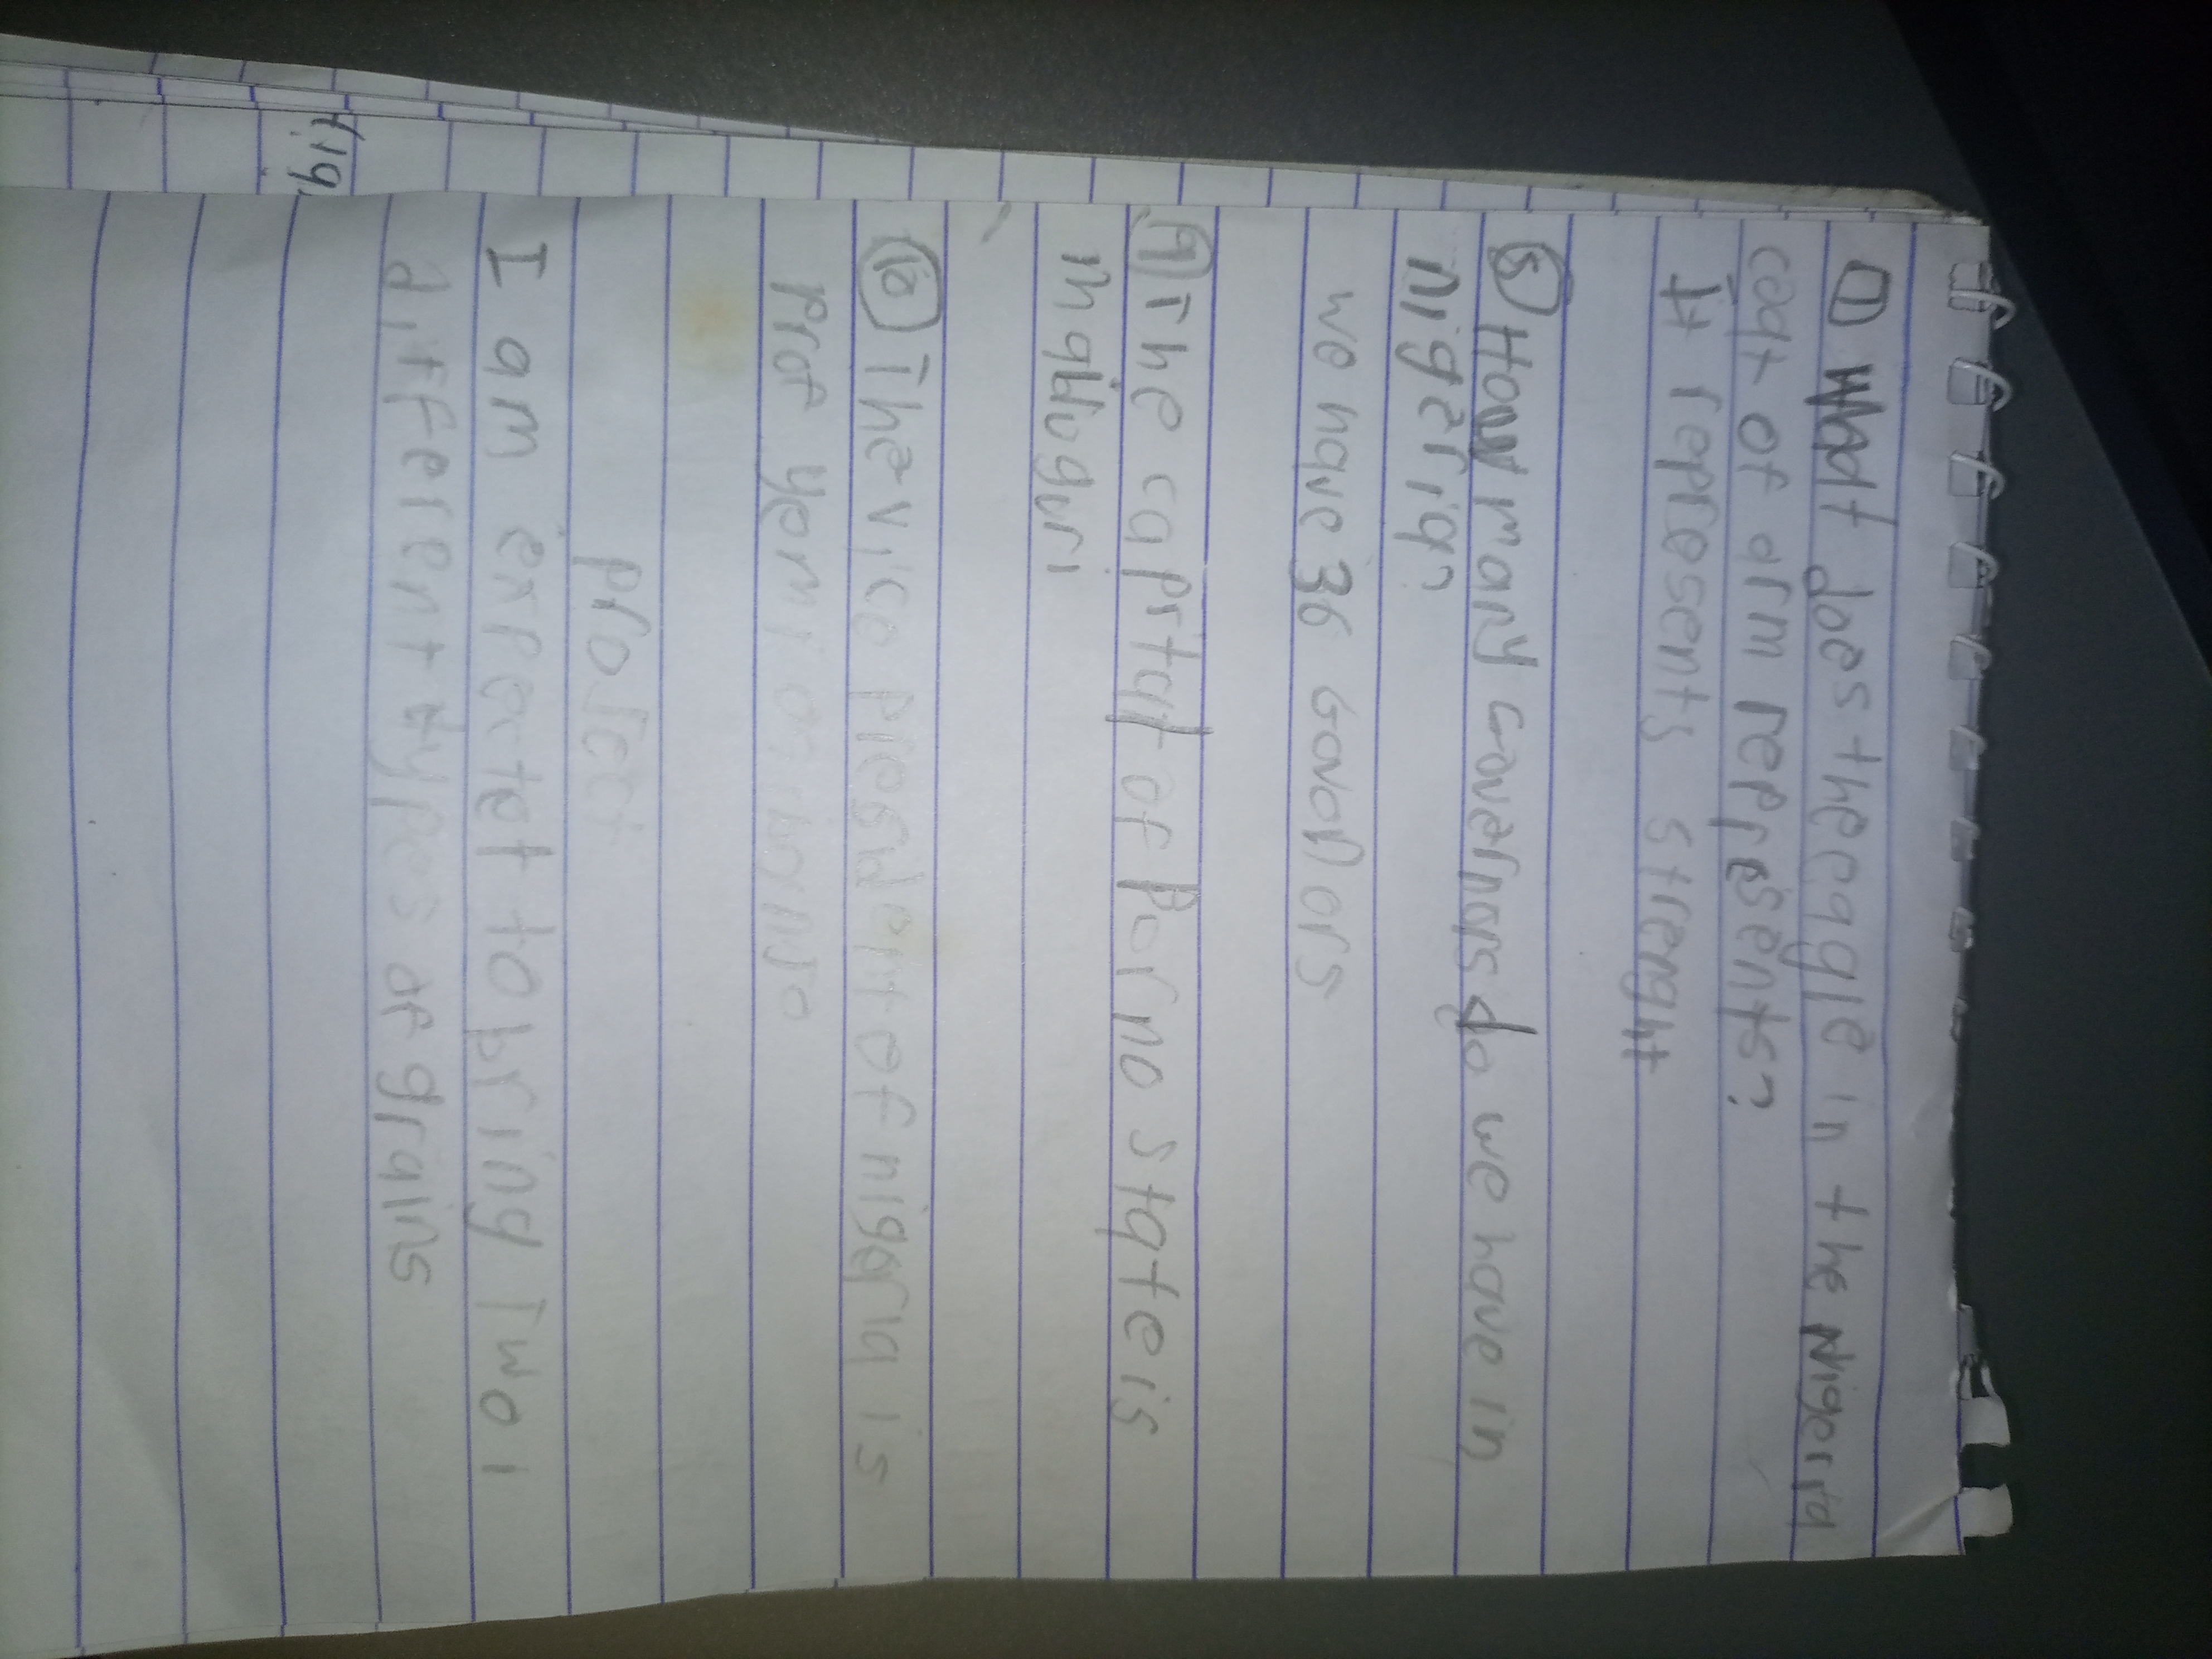 What does the eagle in the Nigeria
coat of arm represents?
It represents strenght
8 How many Governors do we have in
Nigeria?
We have 36 Govonors
9 The capital of Borno state is
maiduguri
10 The vico president of nigeria is
prof yemi osinbnjo
project
I am expected to bring Two
different types of grains